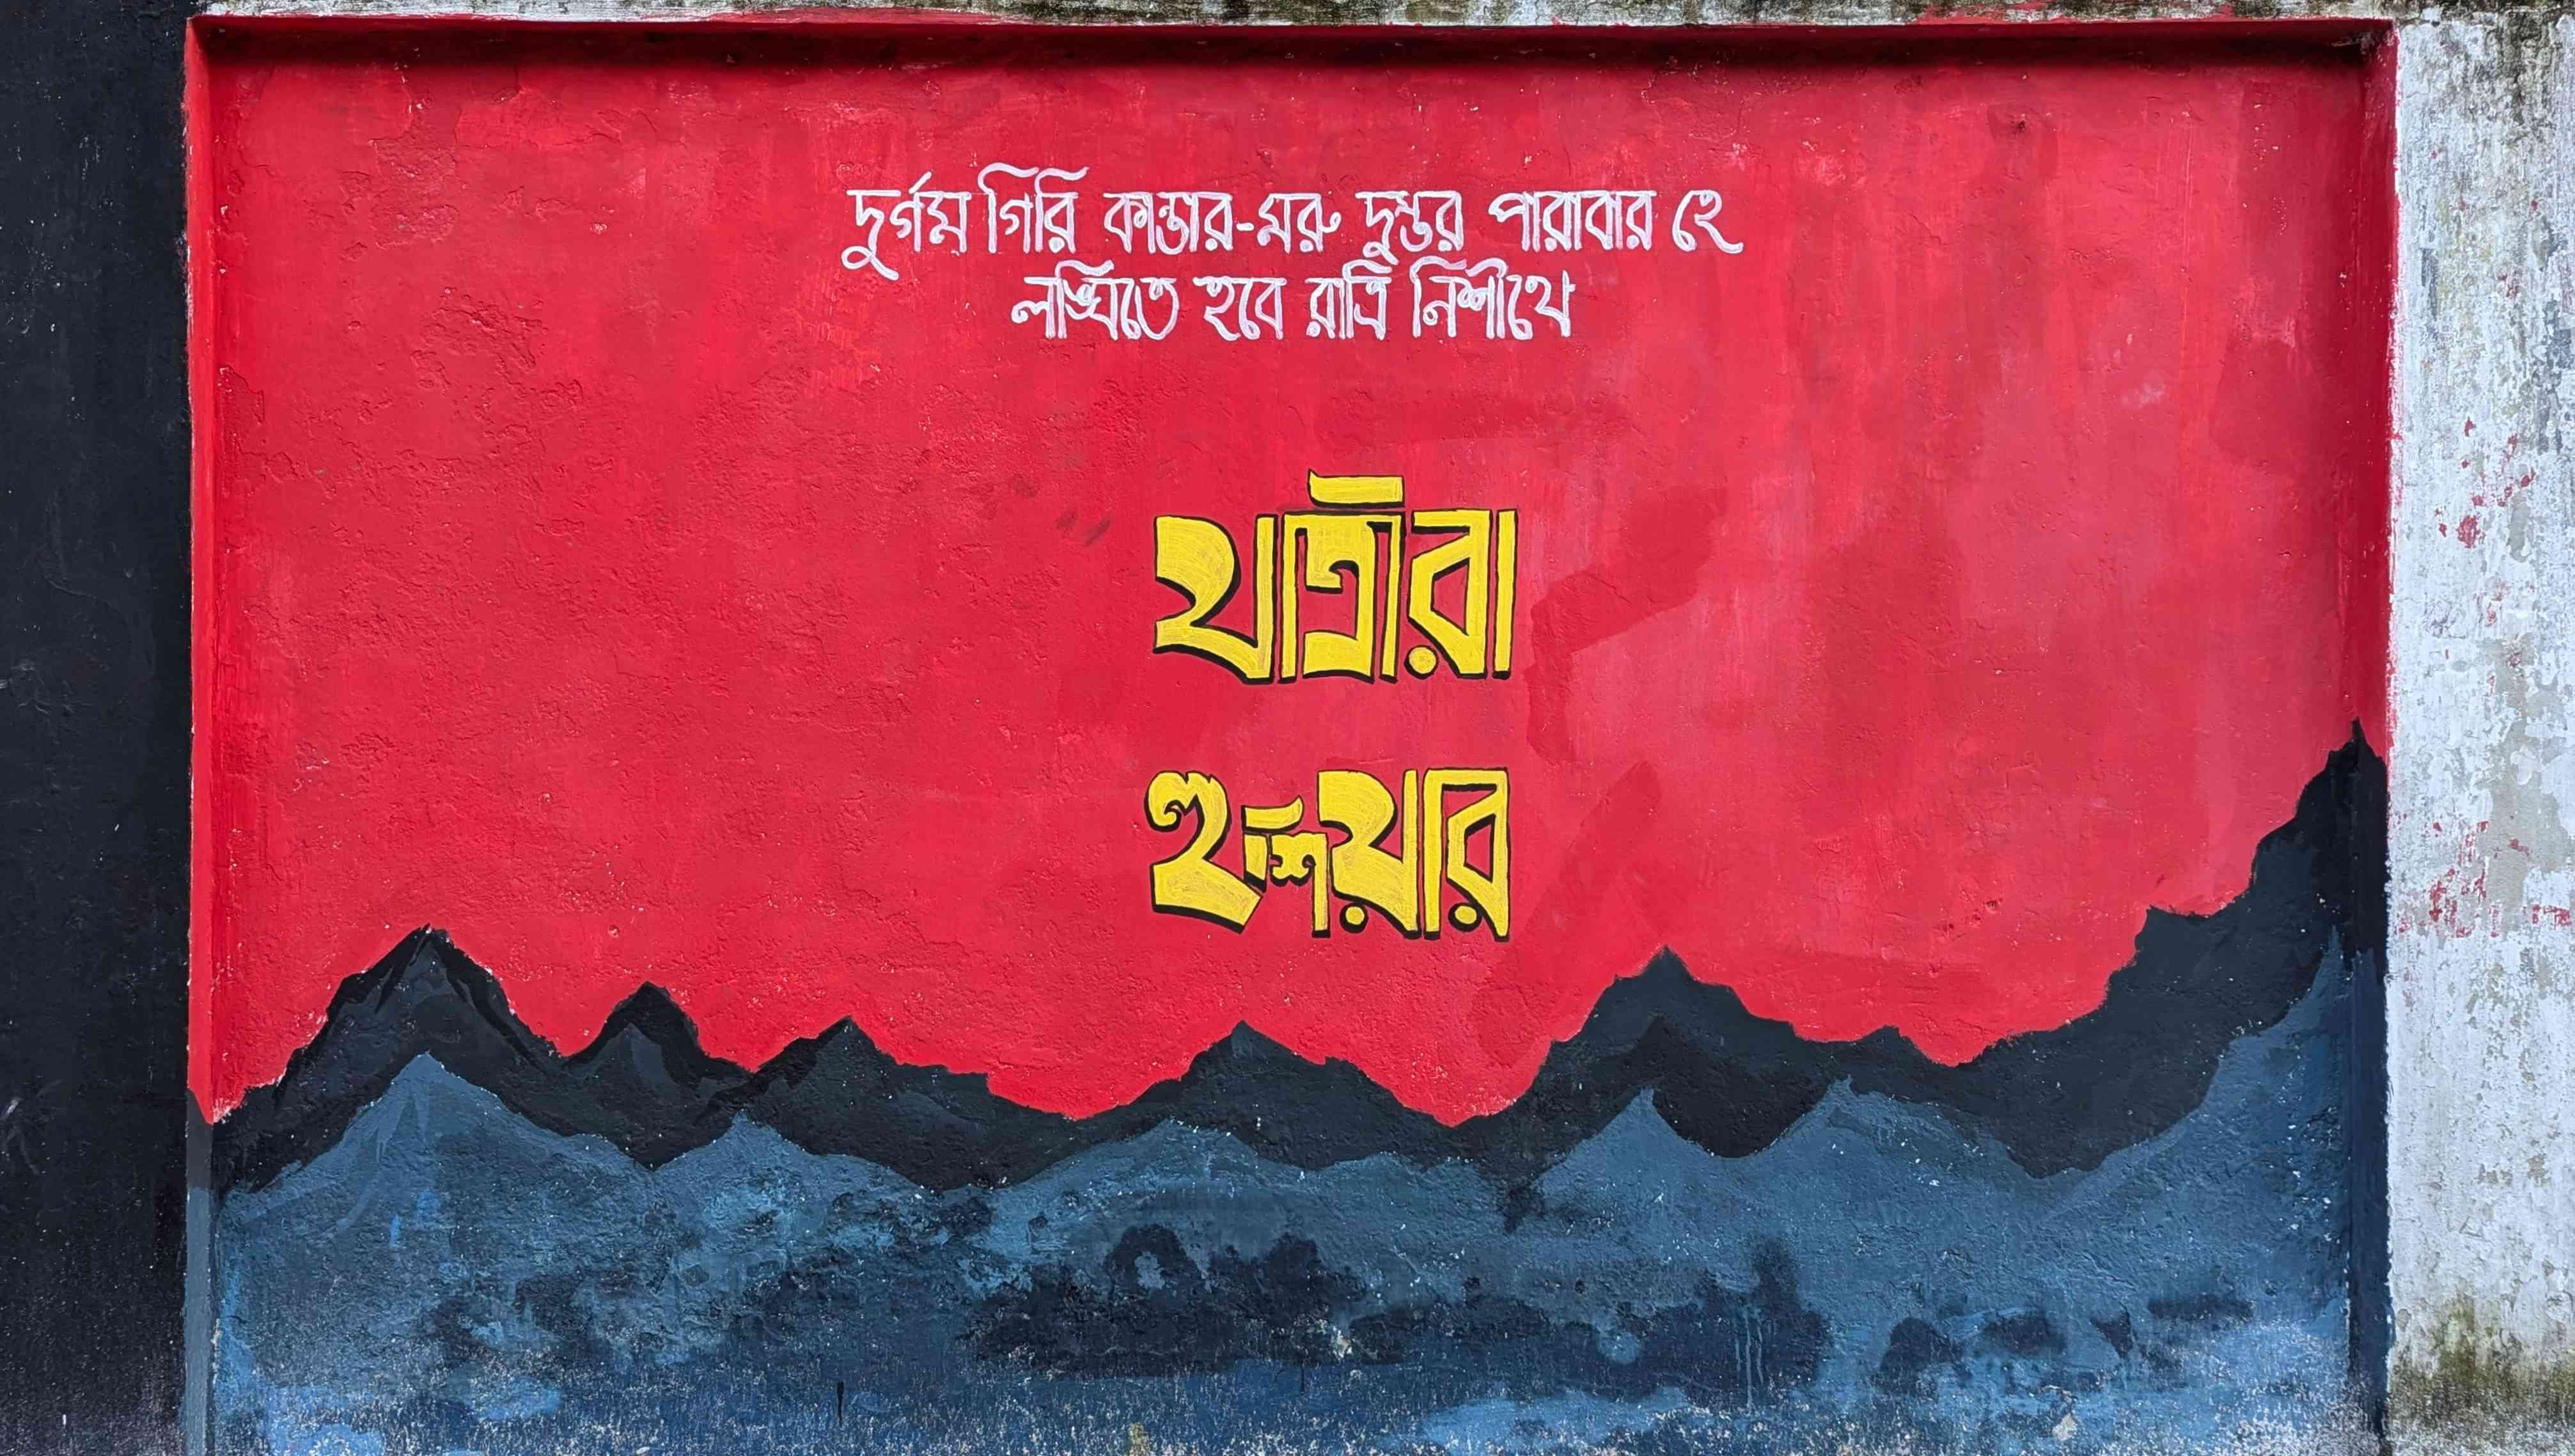 দুর্গম গিরি কান্তার-মরু দুস্তর পারাবার হে
লঙ্ঘিতে হবে রাত্রি নিশীথে
যাত্রীরা
হুশিয়ার